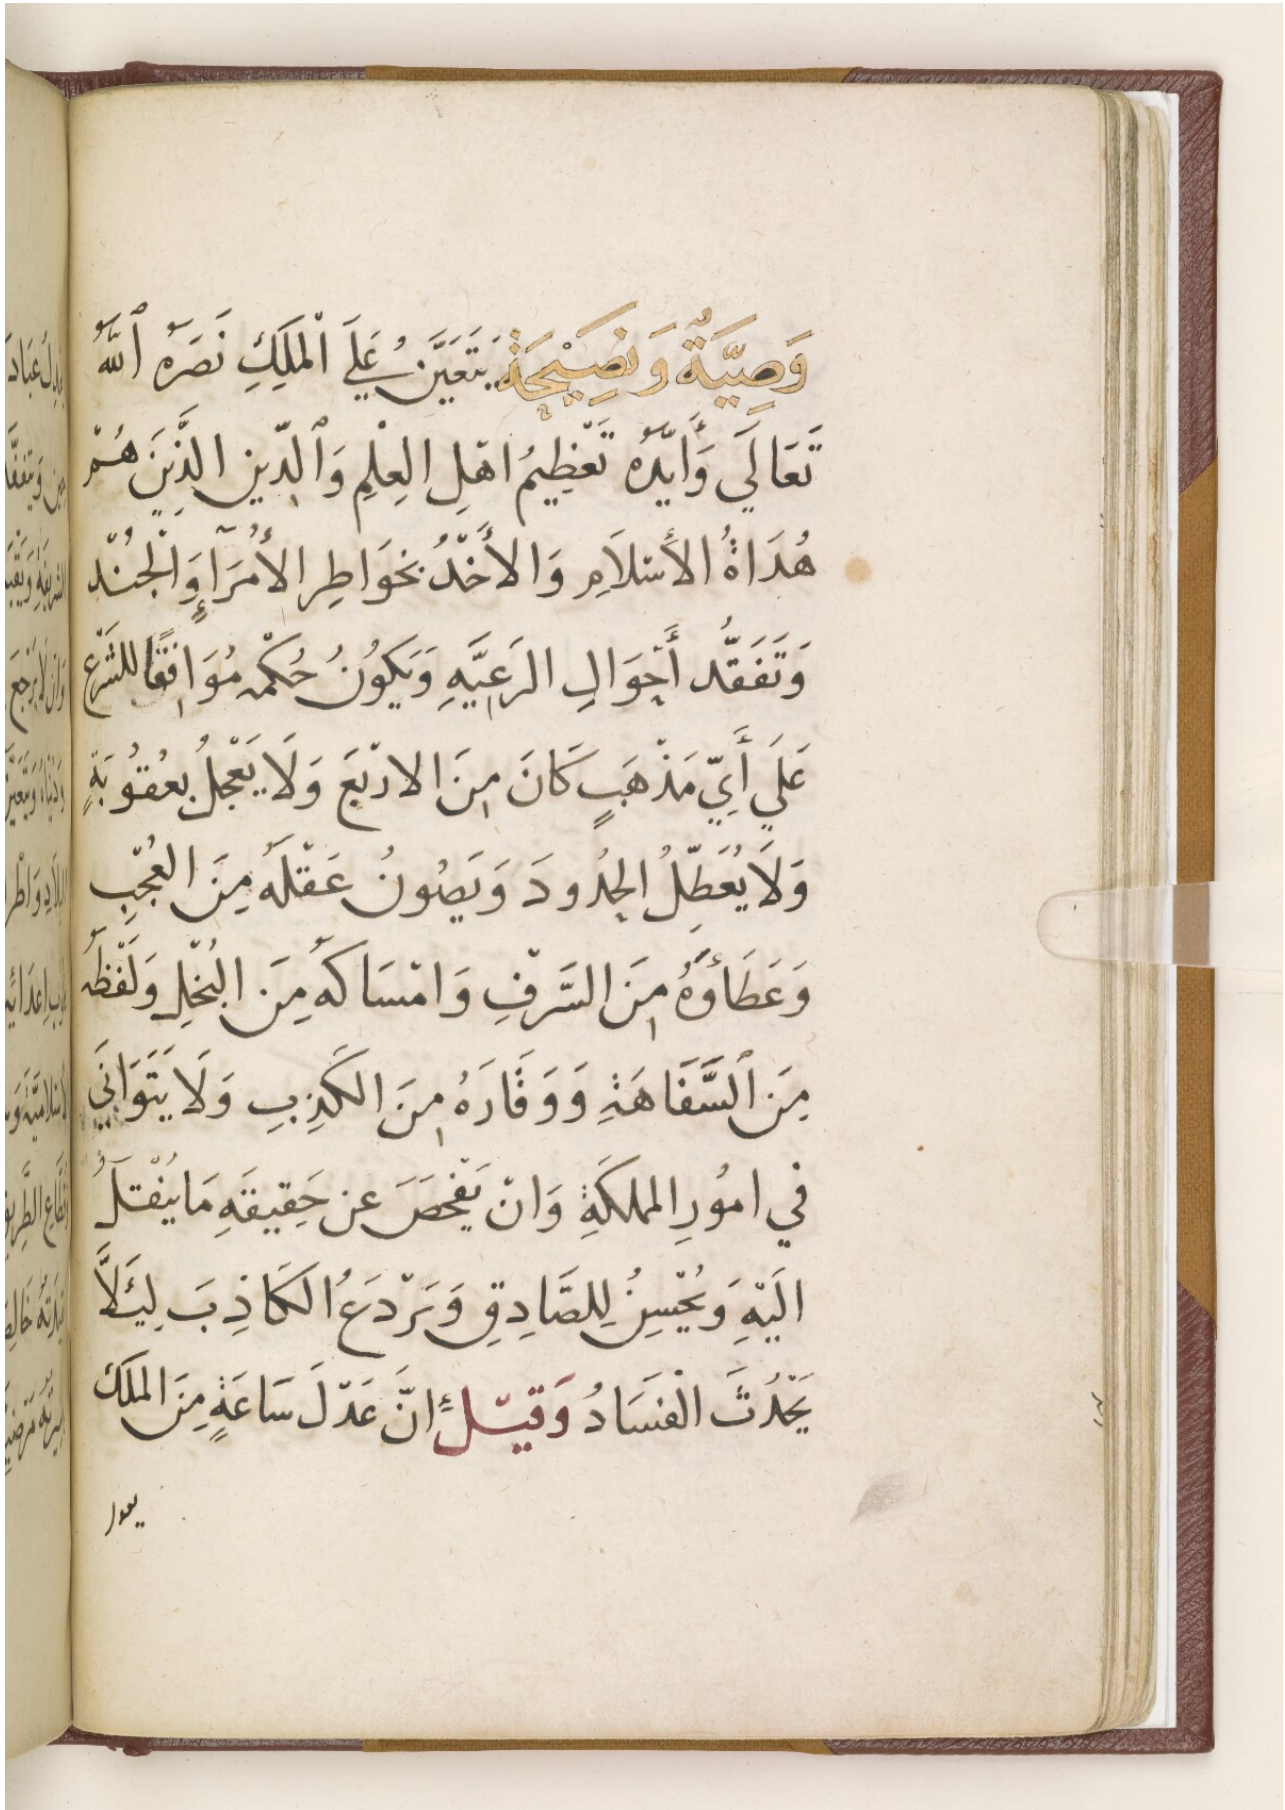 وَصِيَّةٌ وَنَصِيْحَةٌ يَتَعَيَّنُ عَلَي الْمَلِكِ نَصَرَهُ ٱللَّهُ
تَعَالَي وَأَيَّدَهُ تَعْظِيمُ اهْلِ العِلْمِ وَٱلدِّينِ الَّذِينَ هُمْ
هُدَاةُ الأسْلَامِ وَالأَخْذُ بخَوَاطِرِ الأُمَرَآءِ وَالْجُنْدِ
وَتَفَقُّد أَحْوَالِ الرَعِيَّهِ وَيَكُونُ حُكْمه مُوَافِقًا للشَرْعِ
عَلَي أَيِّ مَذْهَبٍ كَانَ مِنَ الارْبَعَ وَلَا يَعْجلُ بعُقُوُبَةٍ
وَلَا يُعَطِّلُ الحُدُودَ وَيَصُونُ عَقْلَهُ مِنَ العُجْبِ
وَعَطَاؤَهُ مِنَ السَّرْفِ وَامْسَاكَهُ مِنَ البُخْلِ وَلَفْظَهُ
مِنَ ٱلسَّفَاهَةِ وَوَقَارَهُ مِنَ الكَذِبِ وَلَا يَتَوَانَي
في امُورِ المملكَةِ وَانْ يَفْحَصَ عن حَقِيقَهِ مَا يُنْقَلُ
الَيْهِ وَيُحْسِنُ لِلصَّادِقِ وَيَرْدَعُ الكَاذِبَ لِئَلاَّ
يَحْدُثَ الْفَسَادُ وَقِيْلَ انَّ عَدْلَ سَاعَةٍ مِنَ الملك